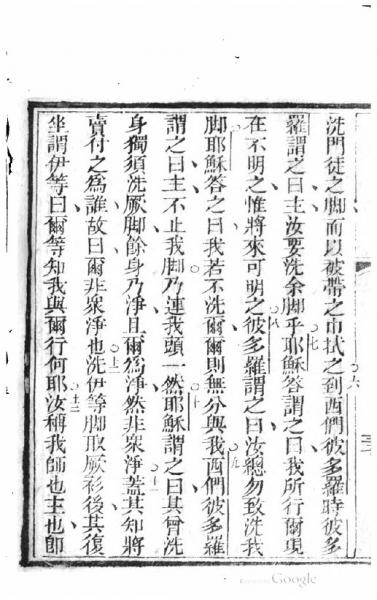 洗門徒之脚而以被帶之巾拭之到西們彼多羅時彼多
羅謂之曰主汝要洗余脚乎耶穌答謂之曰我所行爾現
在不明之惟將來可明之彼多羅謂之曰汝總勿致洗我
脚耶穌答之曰我若不洗爾爾則無分與我西們彼多羅
謂之曰主不止我脚乃連我頭一然耶穌謂之曰其曾洗
身獨須洗厥脚餘身乃淨且爾為淨然非衆淨蓋其知將
賣付之為誰故曰爾非衆淨也洗伊等脚取厥衫後其復
坐謂伊等曰爾等知我與爾行何耶汝稱我師也主也即
〇六
〇七
〇八
〇九
〇十
〇十一
〇十二
Google